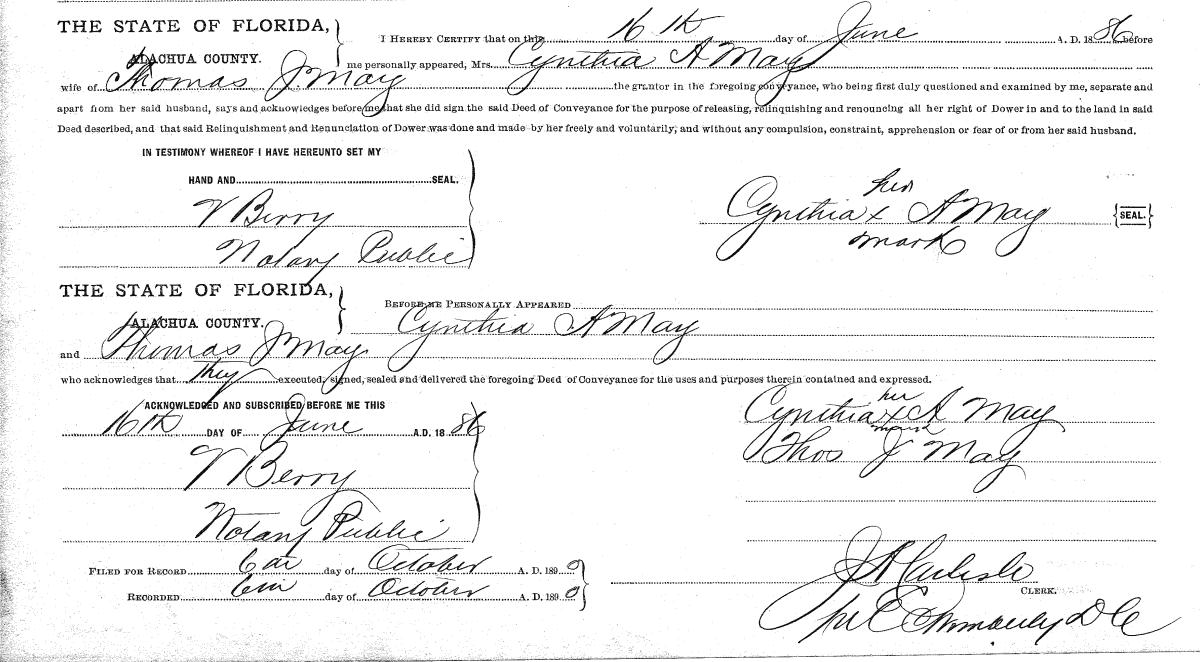 THE STATE OF FLORIDA,
ALACHUA COUNTY.
I HEREBY CERTIFY that on this 16th day of June A. D. 1886 before
me personally appeared, Mrs. Cynthia A May
wife of Thomas J May the grantor in the foregoing conveyance, who being first duly questioned and examined by me, separate and
apart from her said husband, says and acknowledges before me that she did sign the said Deed of Conveyance for the purpose of releasing, relinquishing and renouncing all her right of Dower in and to the land in said
Deed described, and that said Relinquishment and Renunciation of Dower was done and made by her freely and voluntarily, and without any compulsion, constraint, apprehension or fear of or from her said husband.
IN TESTIMONY WHEREOF I HAVE HEREUNTO SET MY
HAND AND SEAL.
V Berry
Notary Public
her
Cynthia x A May {SEAL.}
mark
THE STATE OF FLORIDA,
ALACHUA COUNTY.
BEFORE ME PERSONALLY APPEARED
Cynthia A May
and Thomas J May
who acknowledges that they executed, signed, sealed and delivered the foregoing Deed of Conveyance for the uses and purposes therein contained and expressed.
ACKNOWLEDGED AND SUBSCRIBED BEFORE ME THIS
16th DAY OF June A.D. 1886
V Berry
Notary Public
her
Cynthia x A May
mark
Thos J May
FILED FOR RECORD day of October A. D. 1890
RECORDED day of October A. D. 1890
J A Carlisle
CLERK.
D C